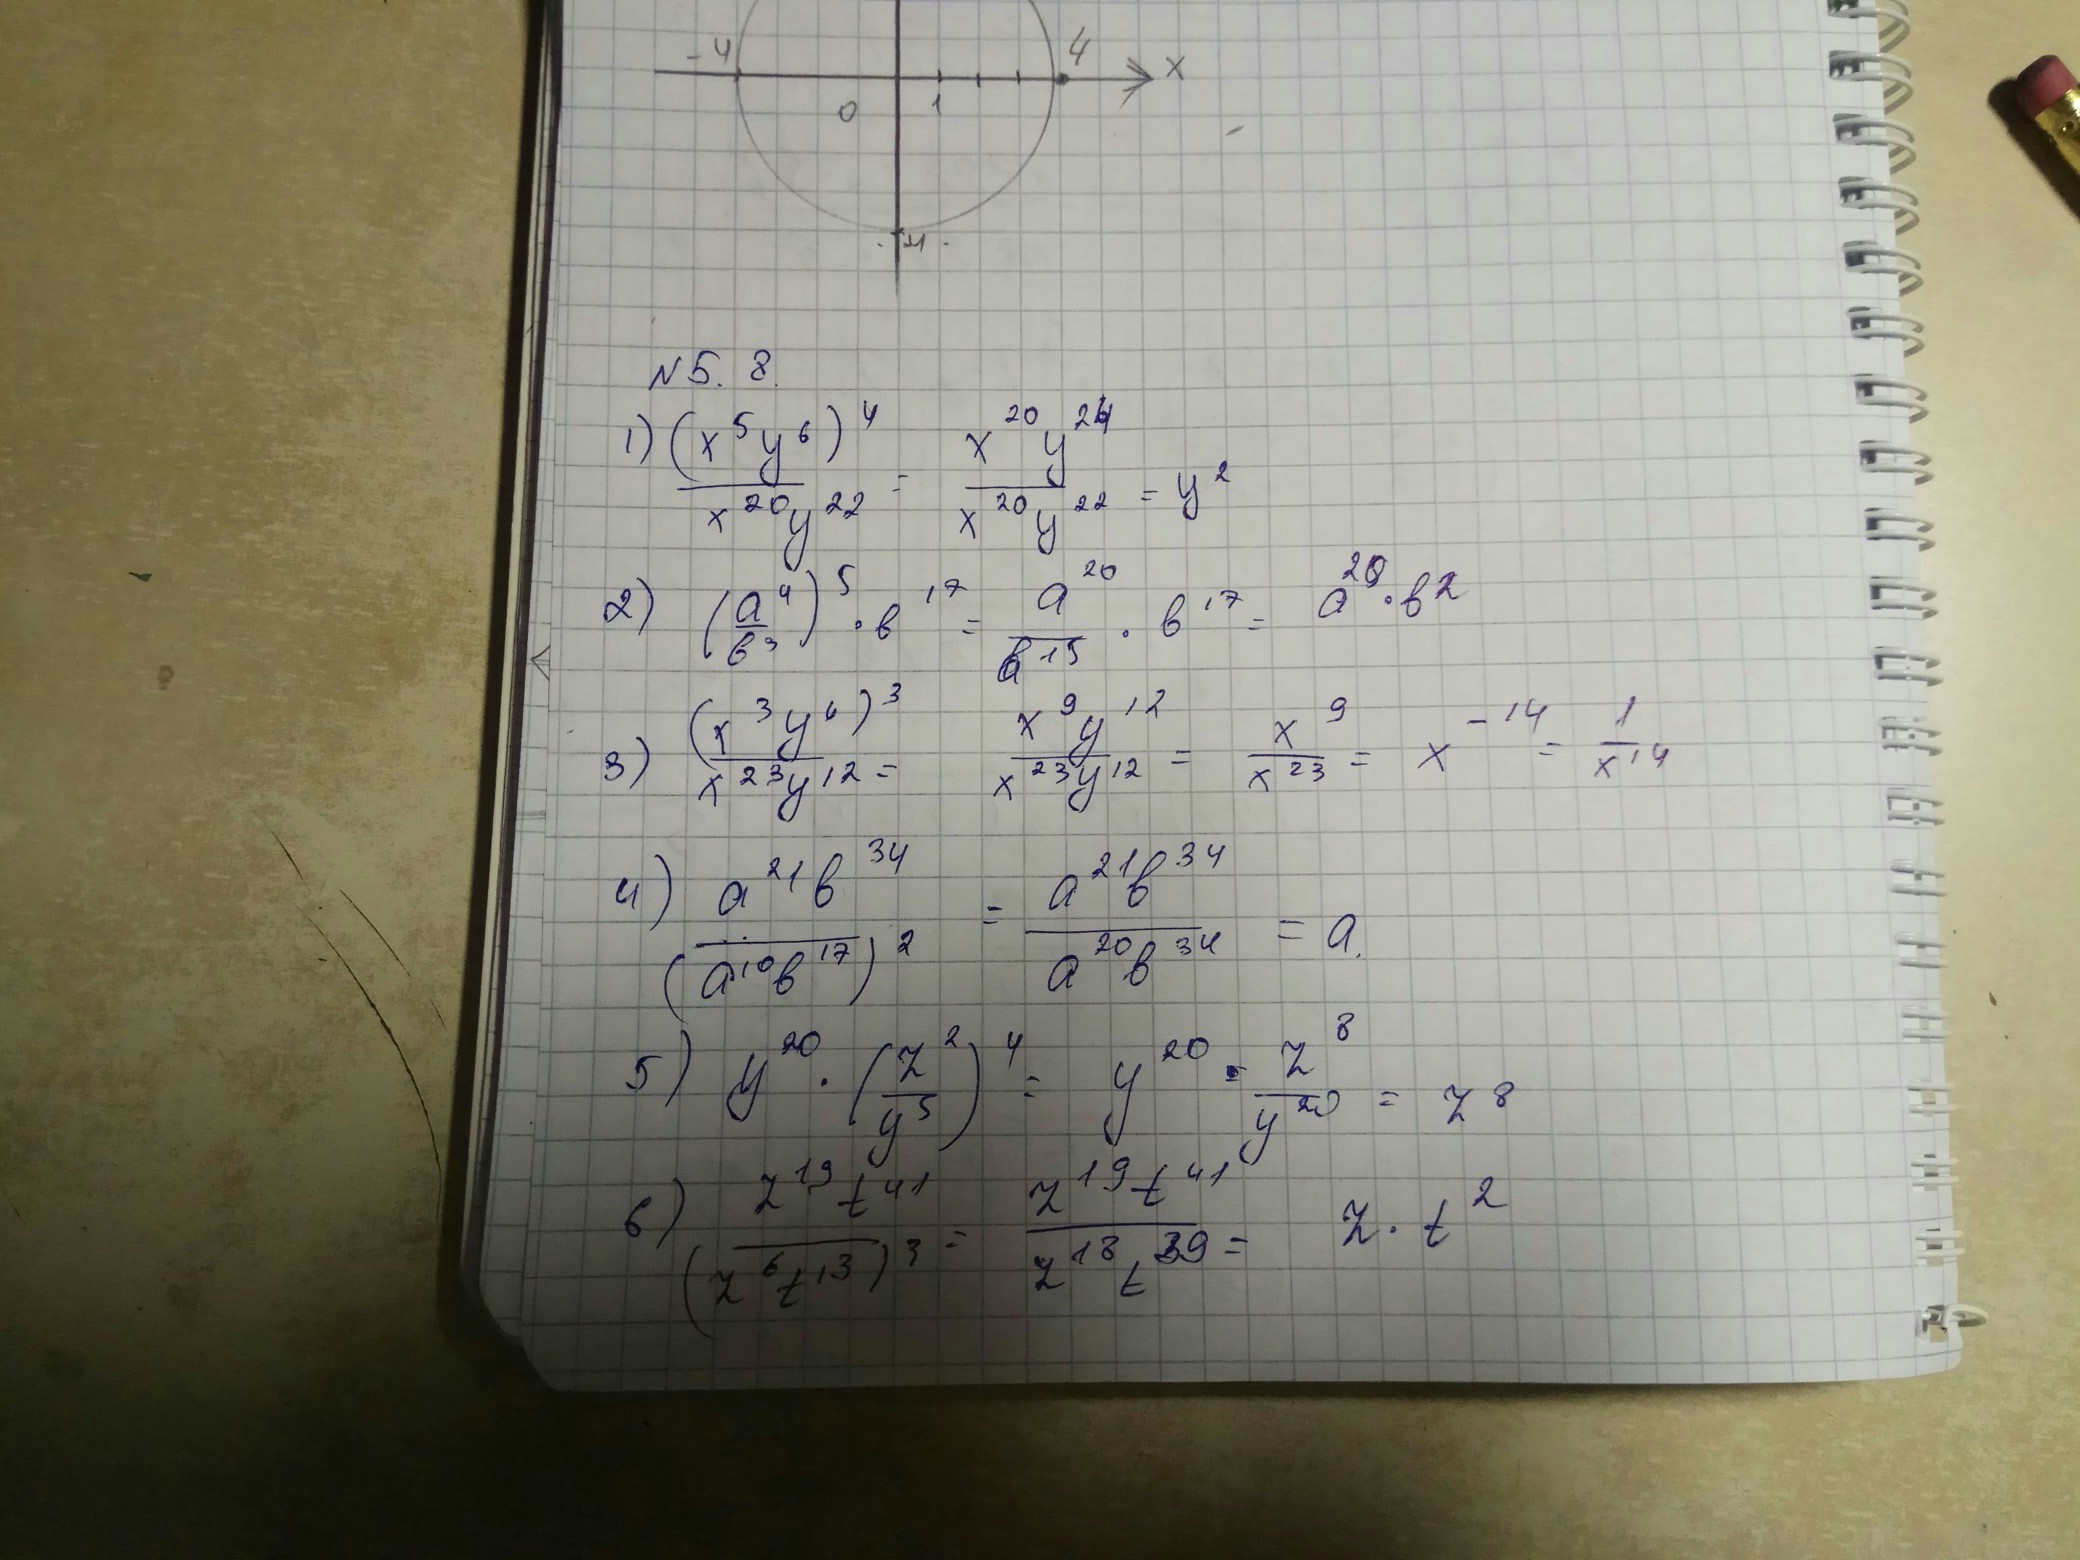 -4 0 1 4 x
-4
N5.8.
1) (x⁵y⁶)⁴/x²⁰y²² = x²⁰y²⁴/x²⁰y²² = y²
2) (a⁴/b³)⁵ · b¹⁷ = a²⁰/b¹⁵ · b¹⁷ = a²⁰ · b²
3) (x³y⁴)³/x²³y¹² = x⁹y¹²/x²³y¹² = x⁹/x²³ = x⁻¹⁴ = 1/x¹⁴
4) a²¹b³⁴/(a¹⁰b¹⁷)² = a²¹b³⁴/a²⁰b³⁴ = a.
5) y²⁰ · (z²/y⁵)⁴ = y²⁰ · z⁸/y²⁰ = z⁸
6) z¹⁹t⁴¹/(z⁶t¹³)³ = z¹⁹t⁴¹/z¹⁸t³⁹ = z · t²